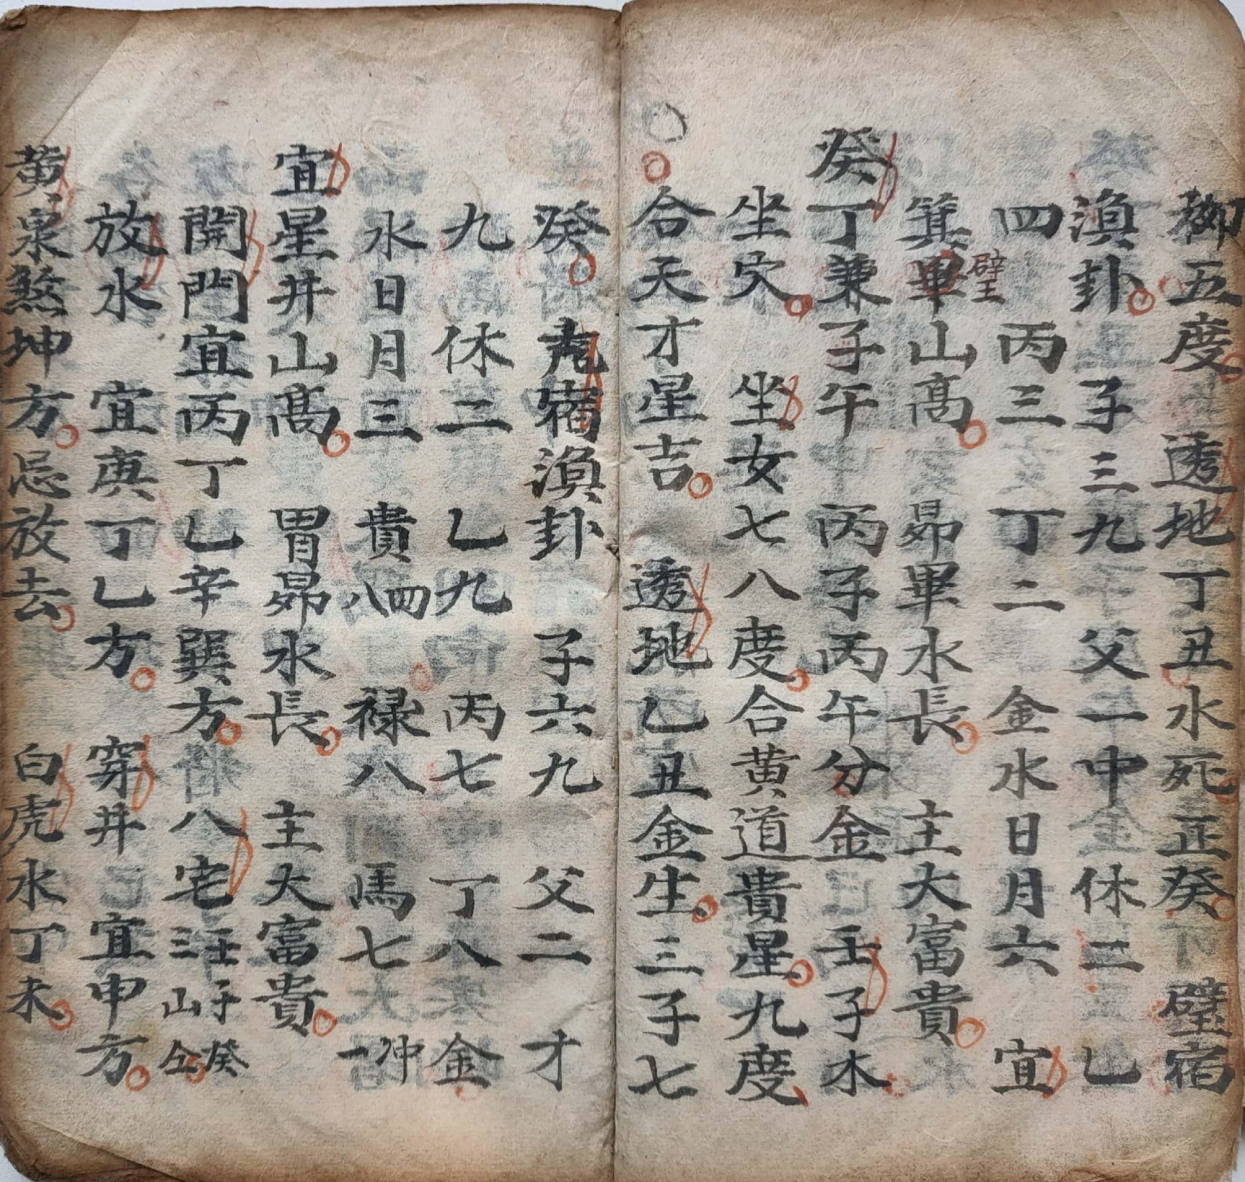 柳五度透地丁丑水死正癸下壁宿
演卦子三九父一中休二乙
四丙三丁二金水日月六宜
箕畢山高昴畢水長主大富貴
壁王
癸丁兼子午丙子丙午分金壬子木
坐穴坐女七八度合黄道貴星九度
合天才星吉透地乙丑金生三子七
癸鬼宿演卦子六九父二才
九休二乙九丙七丁八金
水日月三貴四八禄八馬七冲一
宜星井山高胃昴水長主大富貴
開門宜丙丁乙辛巽方八宅壬子癸三山仝
放水宜庚丁乙方穿井宜申方
黄泉煞坤方忌放去白虎水丁未